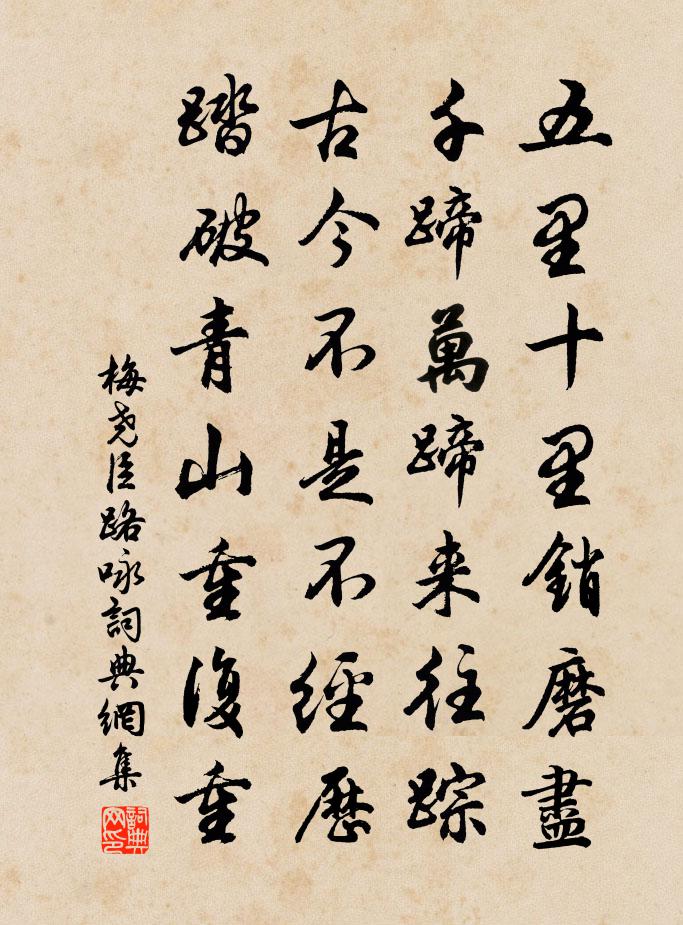 五里十里銷磨盡
千蹄萬蹄来往踪
古今不是不經歷
踏破青山重復重
梅堯臣路咏詞典網集
詞典网印